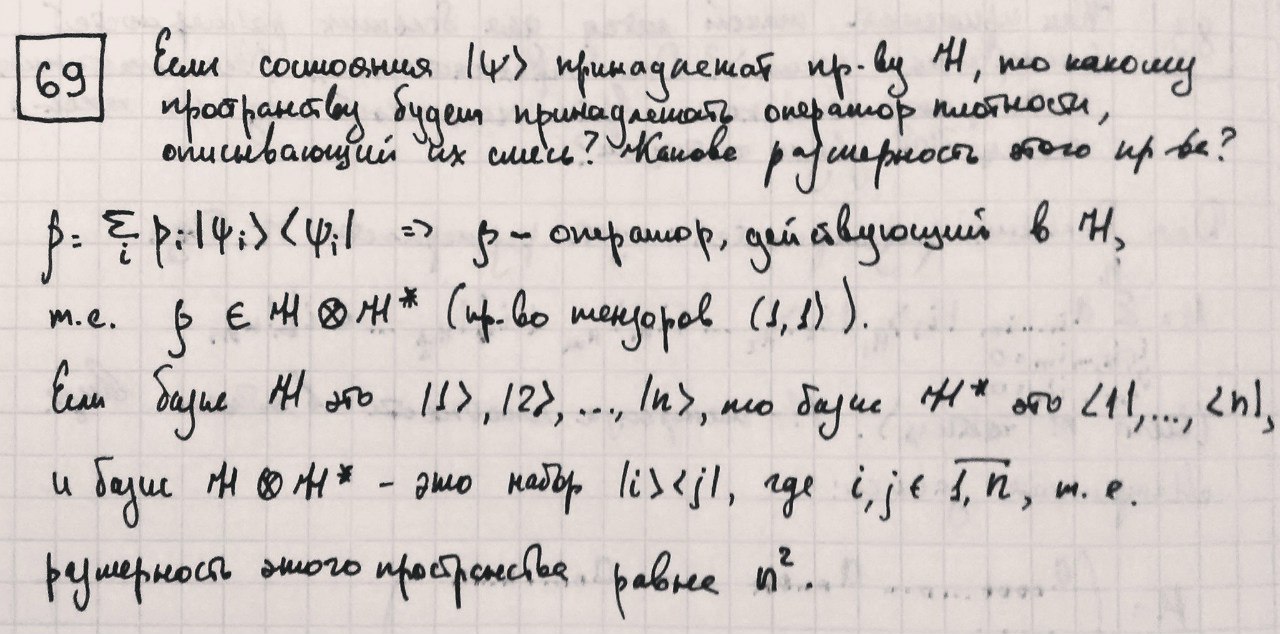 69 Если состояния |ψ> принадлежат пр-ву ℋ, то какому
пространству будет принадлежать оператор плотности,
описывающий их смесь? Какова размерность этого пр-ва?
ρ = Σ_i p_i |ψ_i> <ψ_i| => ρ - оператор, действующий в ℋ,
т.е. ρ ∈ ℋ ⊗ ℋ* (пр-во тензоров (1,1)).
Если базис ℋ это |1>, |2>, ..., |n>, то базис ℋ* это <1|, ..., <n|,
и базис ℋ ⊗ ℋ* - это набор |i><j|, где i, j ∈ 1, n, т.е.
размерность этого пространства равна n².